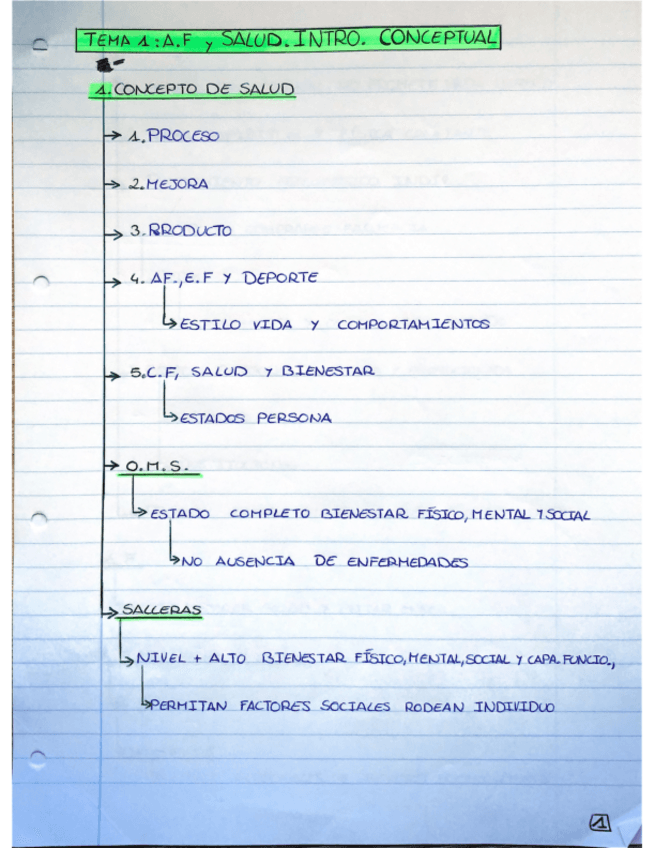 TEMA 1: A.F y SALUD. INTRO. CONCEPTUAL
1. CONCEPTO DE SALUD
→ 1. PROCESO
→ 2. MEJORA
→ 3. PRODUCTO
→ 4. AF., E.F Y DEPORTE
↳ ESTILO VIDA Y COMPORTAMIENTOS
→ 5. C.F, SALUD Y BIENESTAR
↳ ESTADOS PERSONA
→ O.M.S.
↳ ESTADO COMPLETO BIENESTAR FÍSICO, MENTAL Y SOCIAL
↳ NO AUSENCIA DE ENFERMEDADES
→ SALLERAS
↳ NIVEL + ALTO BIENESTAR FÍSICO, MENTAL, SOCIAL Y CAPA. FUNCIO.,
↳ PERMITAN FACTORES SOCIALES RODEAN INDIVIDUO
1